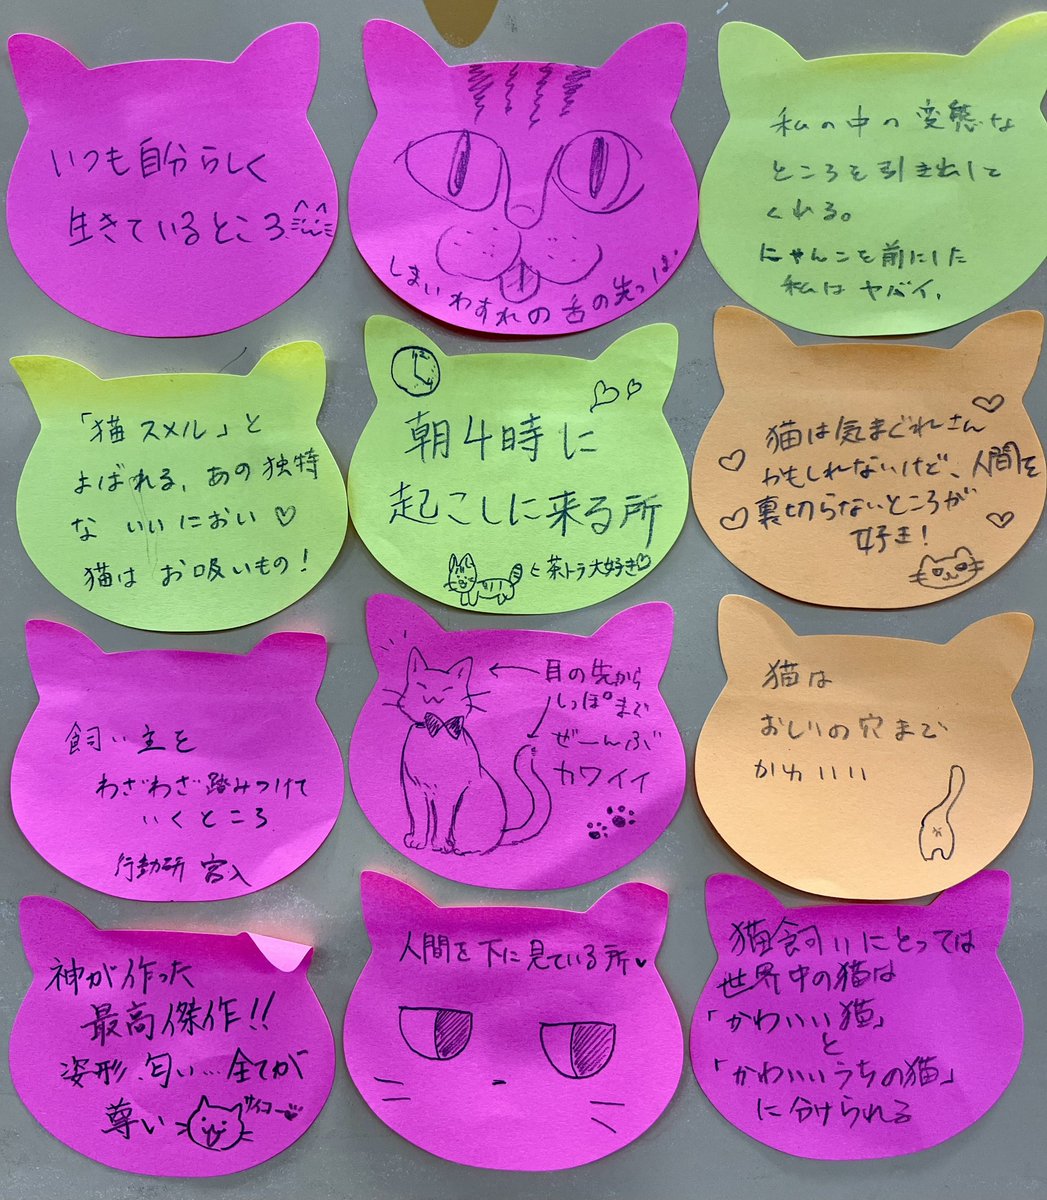 いつも自分らしく
生きているところ
しまいわすれの舌の先っぽ
私の中の変態な
ところを引き出して
くれる。
にゃんこを前にした
私はヤバイ.
「猫スメル」と
よばれる、あの独特
な いいにおい♡
猫は お吸いもの!
朝4時に
起こしに来る所
と茶トラ大好き♡
猫は気まぐれさん
かもしれないけど、人間を
裏切らないところが
好き!
飼い主を
わざわざ踏みつけて
いくところ
行動研 宮入
目の先から
しっぽまで
ぜーんぶ
カワイイ
猫は
おしりの穴まで
かわいい
神が作った
最高傑作!!
姿形、匂い…全てが
尊い
サイコー
人間を下に見ている所♥
猫飼いにとっては
世界中の猫は
「かわいい猫」
と
「かわいいうちの猫」
に分けられる